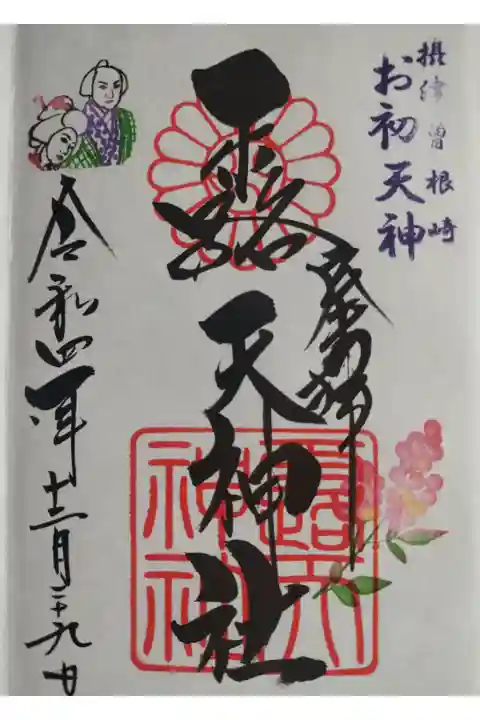 摂津曽根崎
お初天神
奉拝
露天神社
露天
神社
令和四年十二月二十九日